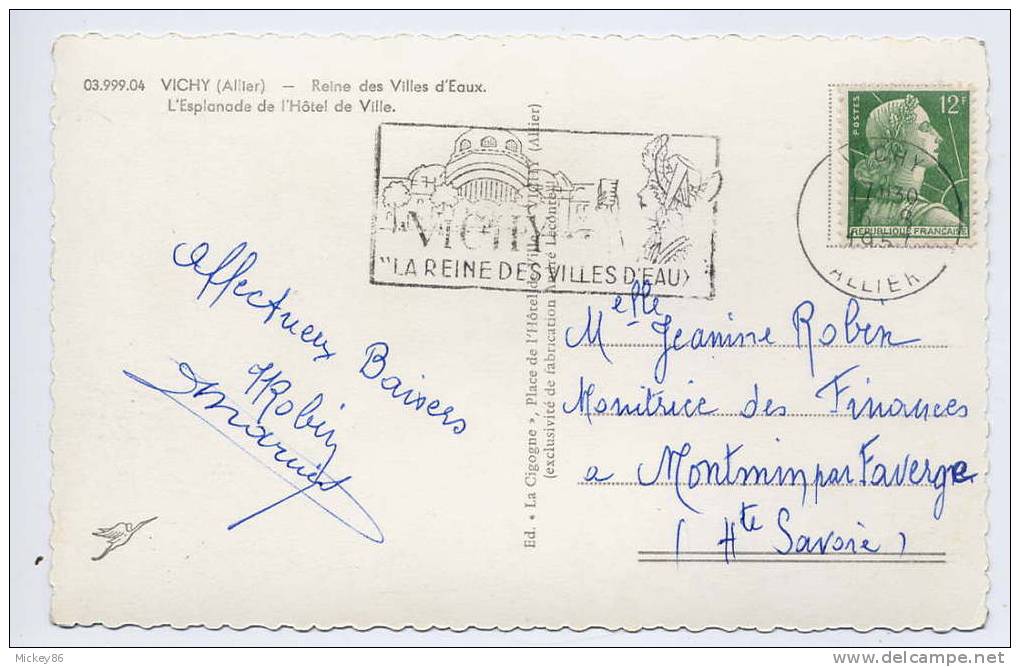 03.999.04 VICHY (Allier) — Reine des Villes d'Eaux.
L'Esplanade de l'Hôtel de Ville.
POSTES 12F
REPUBLIQUE FRANÇAISE
VICHY
17H30
8
1957
ALLIER
VICHY
"LA REINE DES VILLES D'EAU"
Ed. « La Cigogne », Place de l'Hôtel de Ville — VICHY (Allier)
(exclusivité de fabrication André Leconte)
Affectueux Baisers
Robin
Melle Jeanine Robin
Monitrice des Finances
a Montmin par Faverge
(Hte Savoie)
Mickey86
delcampe.net